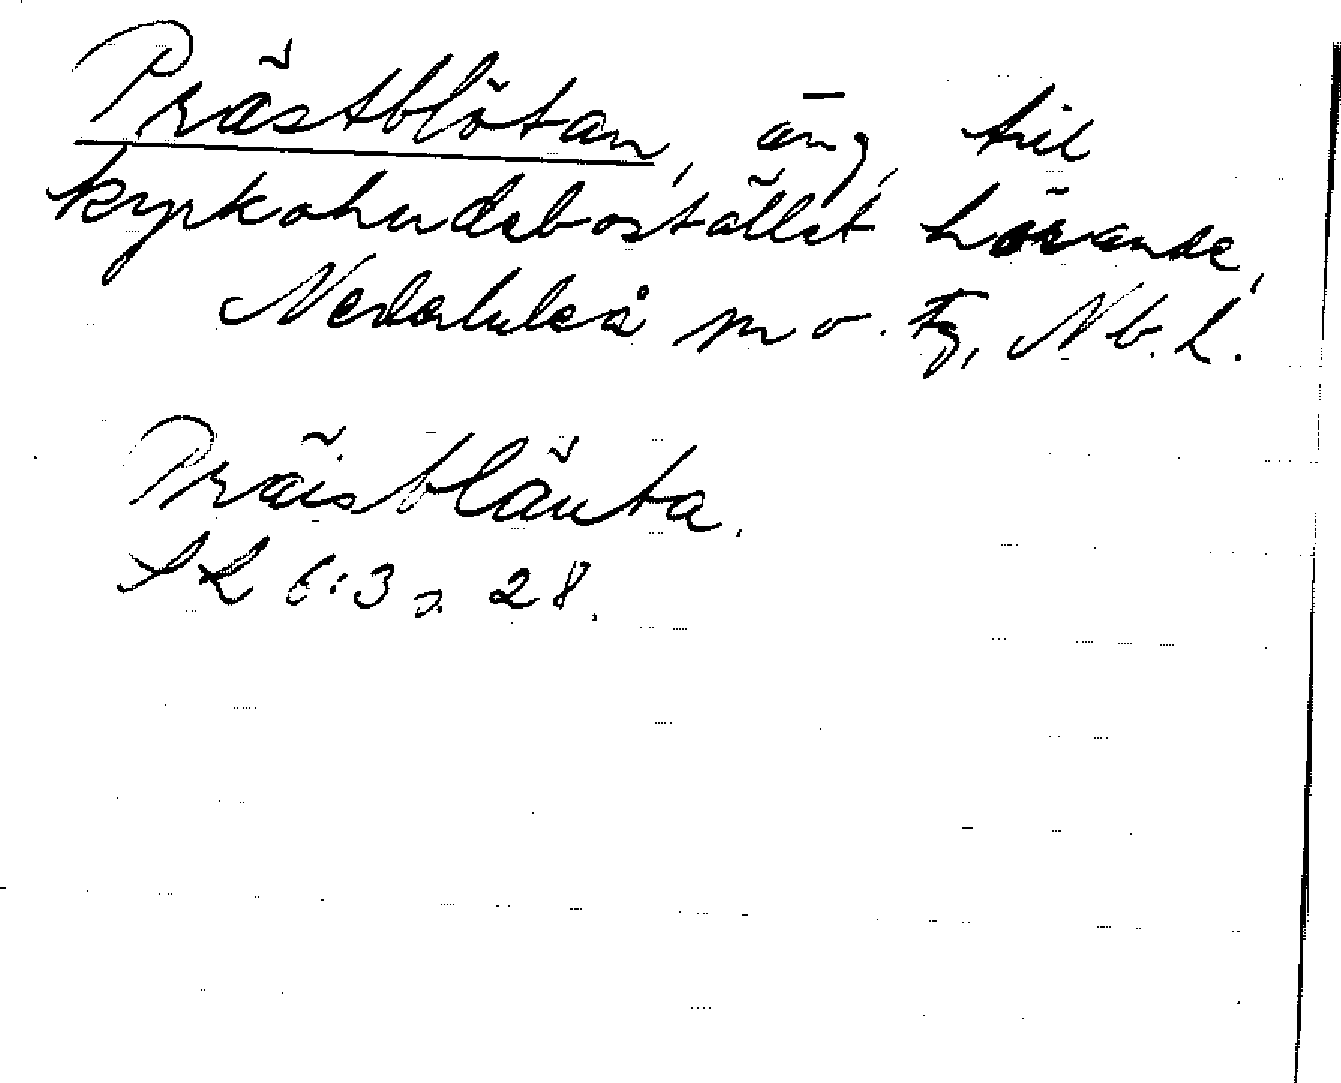 Prästblötan, äng, till
kyrkoherdebostället hörande,
Nederluleå sn o. tg, Nb. L.
Präistbläuta.
SL 6:3 s. 28.